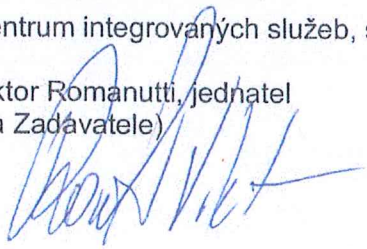 entrum integrovaných služeb, s
ktor Romanutti, jednatel
a Zadavatele)